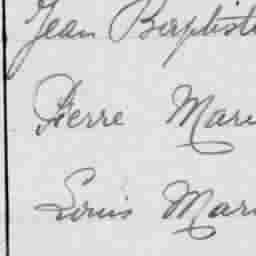 Jean Baptiste
Pierre Mari
Louis Mari